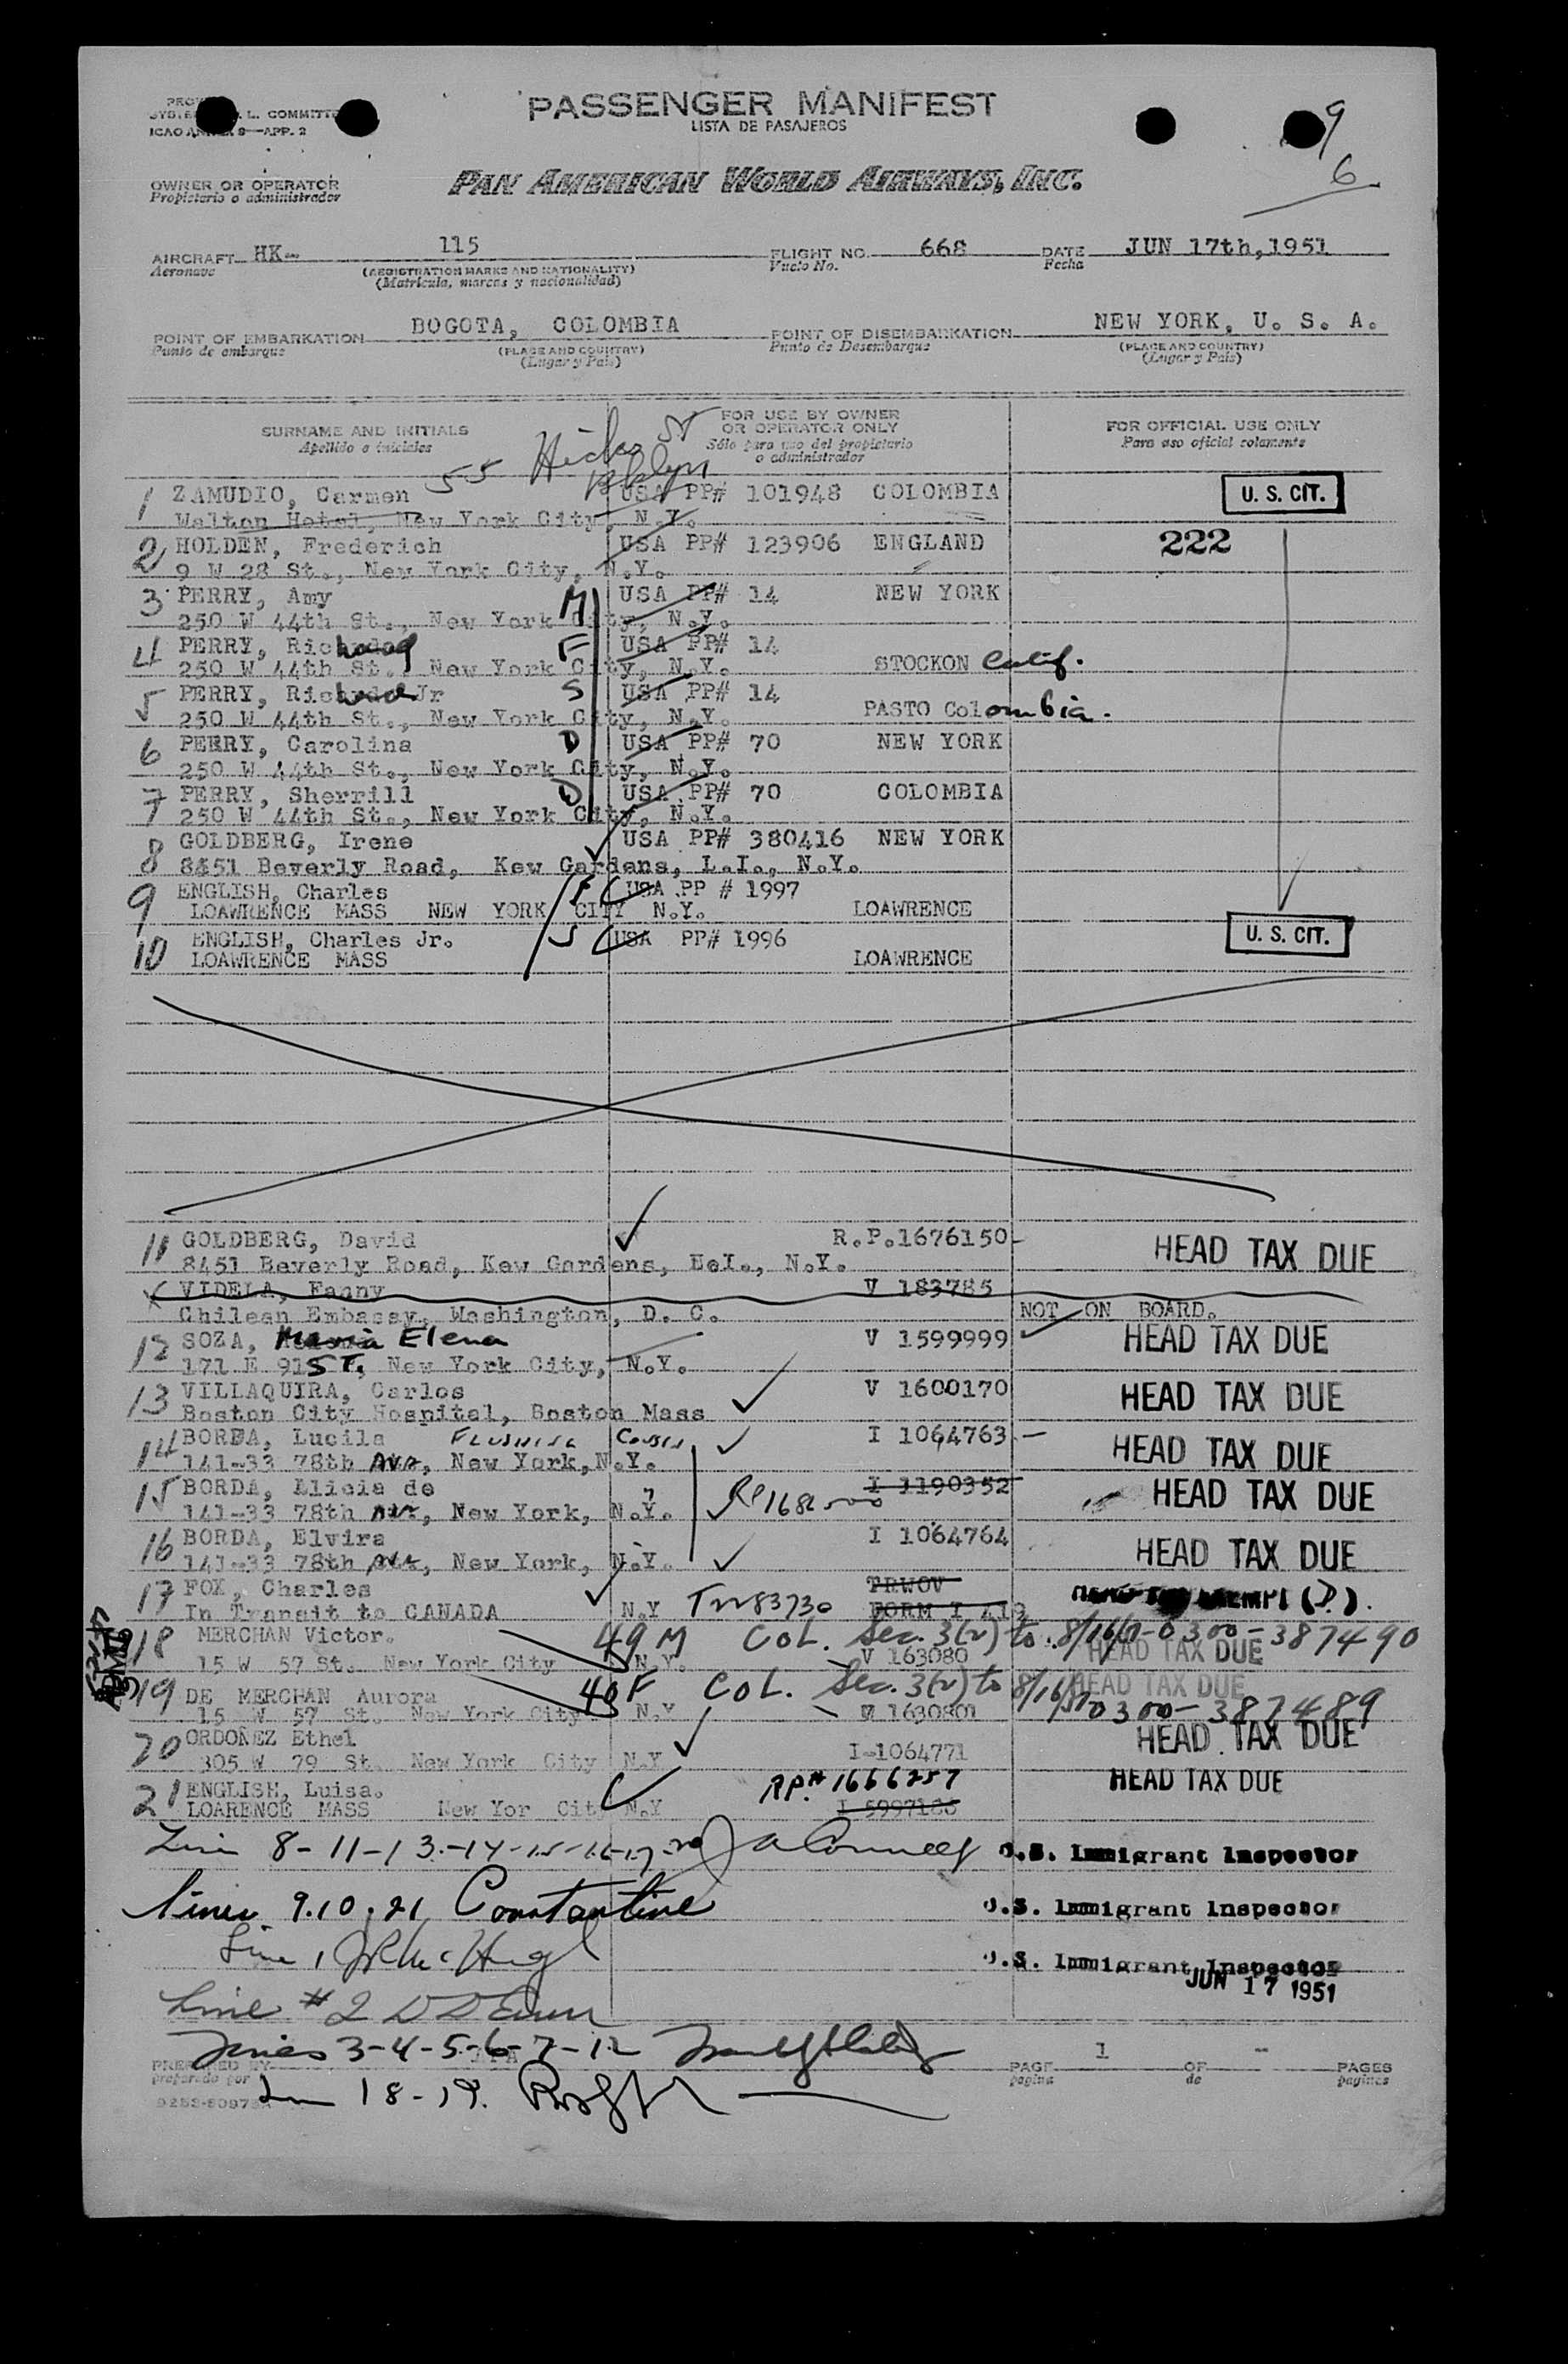 L. COMMITTE
ICAO 9—APP. 2
PASSENGER MANIFEST
LISTA DE PASAJEROS
9
6
OWNER OR OPERATOR
Propietario o administrador
PAN AMERICAN WORLD AIRWAYS, INC.
AIRCRAFT HK- 115 FLIGHT NO. 668 DATE JUN 17th,1951
Aeronave (REGISTRATION MARKS AND NATIONALITY) Vuelo No. Fecha
(Matricula, marcas y nacionalidad)
POINT OF EMBARKATION BOGOTA, COLOMBIA POINT OF DISEMBARKATION NEW YORK, U. S. A.
Punto de embarque (PLACE AND COUNTRY) Punto de Desembarque (PLACE AND COUNTRY)
(Lugar y País) (Lugar y País)
SURNAME AND INITIALS FOR USE BY OWNER OR OPERATOR ONLY FOR OFFICIAL USE ONLY
Apellido e iniciales Sólo para uso del propietario o administrador Para uso oficial solamente
55 Hicks St Bklyn
1 ZAMUDIO, Carmen USA PP# 101948 COLOMBIA U. S. CIT.
Walton Hotel, New York City, N.Y.
2 HOLDEN, Frederich USA PP# 123906 ENGLAND 222
9 W 28 St., New York City, N.Y.
3 PERRY, Amy M USA PP# 14 NEW YORK
250 W 44th St., New York City, N.Y.
4 PERRY, Richard F USA PP# 14
250 W 44th St., New York City, N.Y. STOCKON Calif.
5 PERRY, Richard Jr S USA PP# 14
250 W 44th St., New York City, N.Y. PASTO Colombia.
6 PERRY, Carolina D USA PP# 70 NEW YORK
250 W 44th St., New York City, N.Y.
7 PERRY, Sherrill D USA PP# 70 COLOMBIA
250 W 44th St., New York City, N.Y.
8 GOLDBERG, Irene USA PP# 380416 NEW YORK
8451 Beverly Road, Kew Gardens, L.I., N.Y.
9 ENGLISH, Charles F USA PP # 1997
LOAWRENCE MASS NEW YORK CITY N.Y. LOAWRENCE
10 ENGLISH, Charles Jr. S USA PP# 1996 U. S. CIT.
LOAWRENCE MASS LOAWRENCE
11 GOLDBERG, David R.P.1676150 HEAD TAX DUE
8451 Beverly Road, Kew Gardens, L.I., N.Y.
VIDELA, Fanny V 183785
Chilean Embassy, Washington, D. C. NOT ON BOARD.
12 SOZA, Maria Elena V 1599999 HEAD TAX DUE
171 E 91ST, New York City, N.Y.
13 VILLAQUIRA, Carlos V 1600170 HEAD TAX DUE
Boston City Hospital, Boston Mass
14 BORDA, Lucila FLUSHING I 1064763 HEAD TAX DUE
141-33 78th AVE, New York, N.Y.
15 BORDA, Elicia de I 1190352 HEAD TAX DUE
141-33 78th AVE, New York, N.Y.
16 BORDA, Elvira I 1064764 HEAD TAX DUE
141-33 78th AVE, New York, N.Y.
17 FOX, Charles TRWOV
In Transit to CANADA N.Y FORM I 413
18 MERCHAN Victor. 49 M COL. Sec. 3(2) to 8/16/51-0300-387490
15 W 57 St. New York City N.Y. V 163080 HEAD TAX DUE
19 DE MERCHAN Aurora 40 F COL. Sec. 3(2) to 8/16/51 0300-387489 HEAD TAX DUE
15 W 57 St. New York City N.Y
20 ORDOÑEZ Ethel I-1064771 HEAD TAX DUE
305 W 79 St. New York City N.Y
21 ENGLISH, Luisa. RP.# 1666257 HEAD TAX DUE
LOARENCE MASS New Yor City N.Y
Line 8-11-13-14-15-16-17-20 U.S. Immigrant Inspector
Lines 9.10.21 Constantine U.S. Immigrant Inspector
Line 1 U.S. Immigrant Inspector
JUN 17 1951
Line # 2
Lines 3-4-5-6-7-12
PREPARED BY PAGE 1 OF - PAGES
preparado por pagina de paginas
Line 18-19.